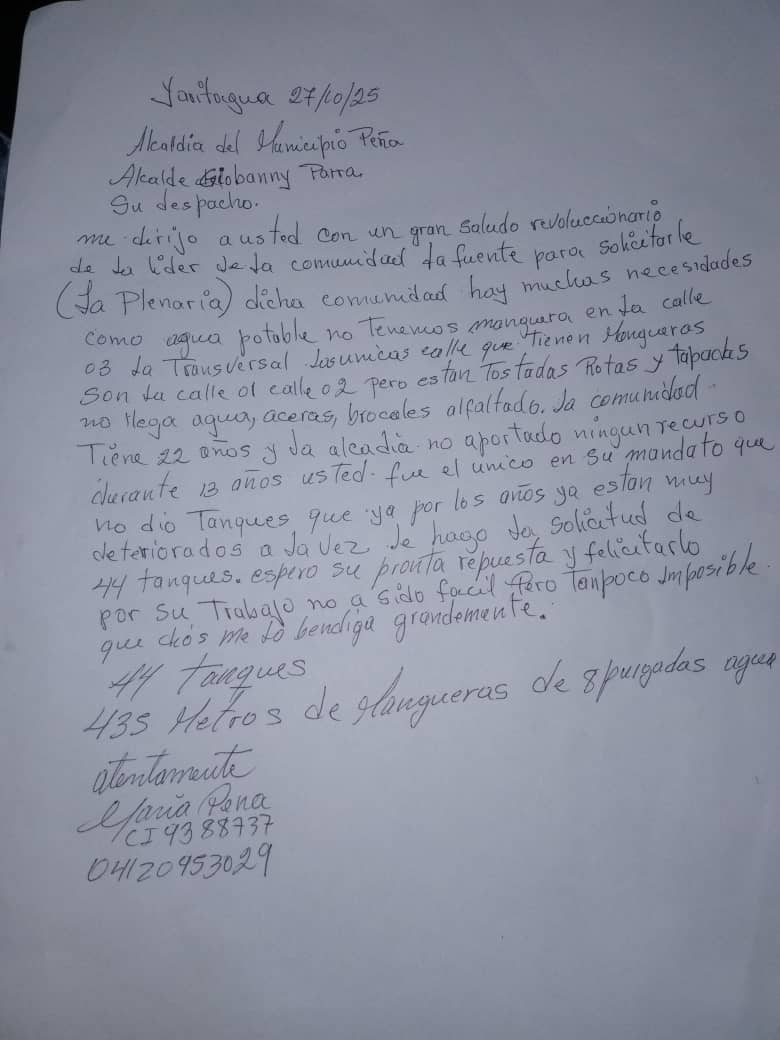 Yaritagua 27/10/25
Alcaldia del Municipio Peña
Alcalde Giobanny Parra.
Su despacho.
me dirijo a usted con un gran saludo revoluccionario
de la lider de la comunidad la fuente para solicitarle
(La Plenaria) dicha comunidad hay muchas necesidades
como agua potable no Tenemos manguera en la calle
03 la Transversal las unicas calle que Tienen Mangueras
Son la calle 01 calle 02 pero estan Tostadas Rotas y tapadas
no llega agua, aceras, brocales alfaltado. la comunidad
Tiene 22 años y la alcadia no aportado ningun recurso
durante 13 años usted. fue el unico en su mandato que
no dio Tanques que ya por los años ya estan muy
deteriorados a la vez le hago la solicitud de
44 tanques. espero su pronta repuesta y felicitarlo
por su Trabajo no a sido facil Pero Tanpoco imposible.
que dios me lo bendiga grandemente.
44 Tanques
435 Metros de Mangueras de 8 pulgadas agua
atentamente
Maria Pena
CI 9388737
04120953029